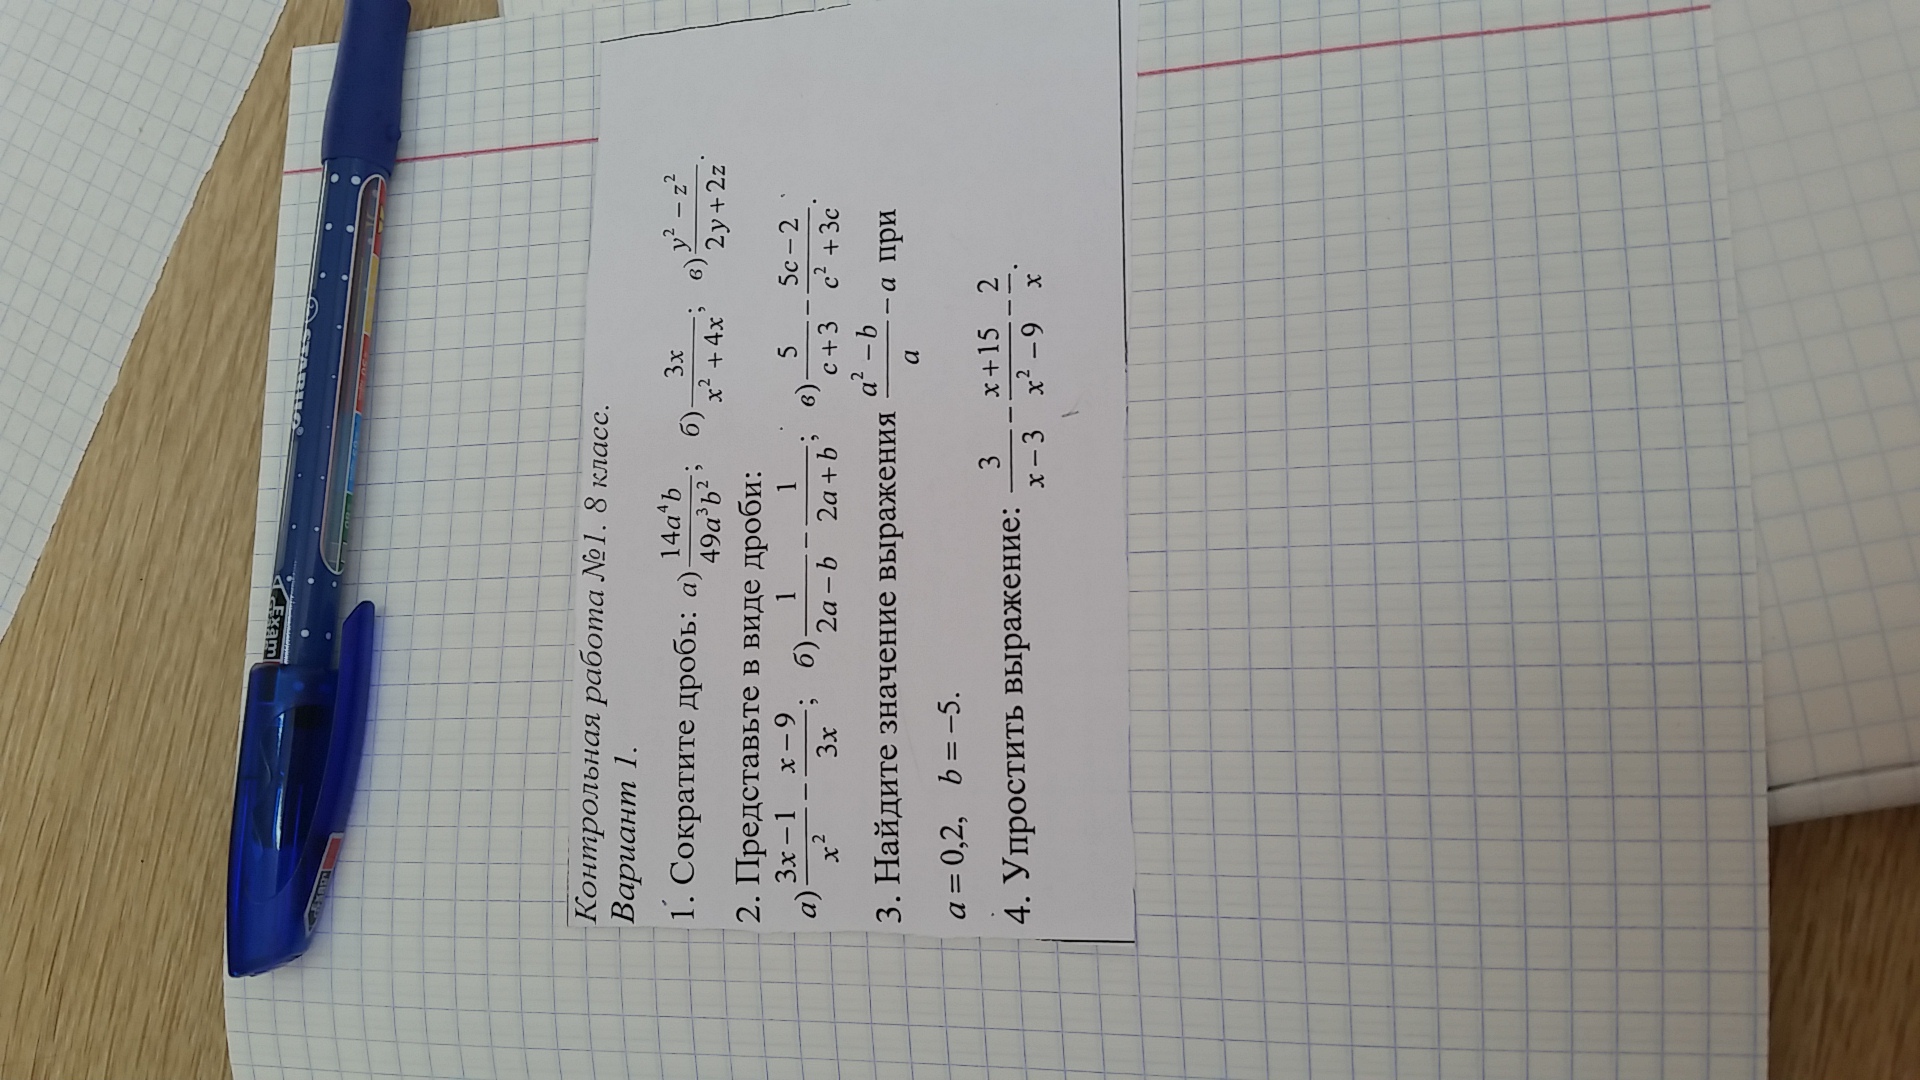 Контрольная работа №1. 8 класс.
Вариант 1.
1. Сократите дробь: а) \frac{14a^4b}{49a^3b^2}; б) \frac{3x}{x^2+4x}; в) \frac{y^2-z^2}{2y+2z}.
2. Представьте в виде дроби:
а) \frac{3x-1}{x^2} - \frac{x-9}{3x}; б) \frac{1}{2a-b} - \frac{1}{2a+b}; в) \frac{5}{c+3} - \frac{5c-2}{c^2+3c}.
3. Найдите значение выражения \frac{a^2-b}{a} - a при
a = 0,2, b = -5.
4. Упростить выражение: \frac{3}{x-3} - \frac{x+15}{x^2-9} - \frac{2}{x}.
Exam